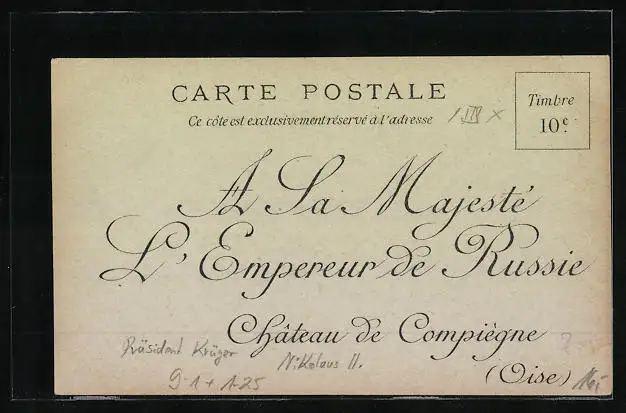 CARTE POSTALE
Ce côte est exclusivement réservé à l'adresse
Timbre
10c
A Sa Majesté
L'Empereur de Russie
Château de Compiègne
(Oise)
Präsident Krüger
Nikolaus II.
9-1 + 1-25